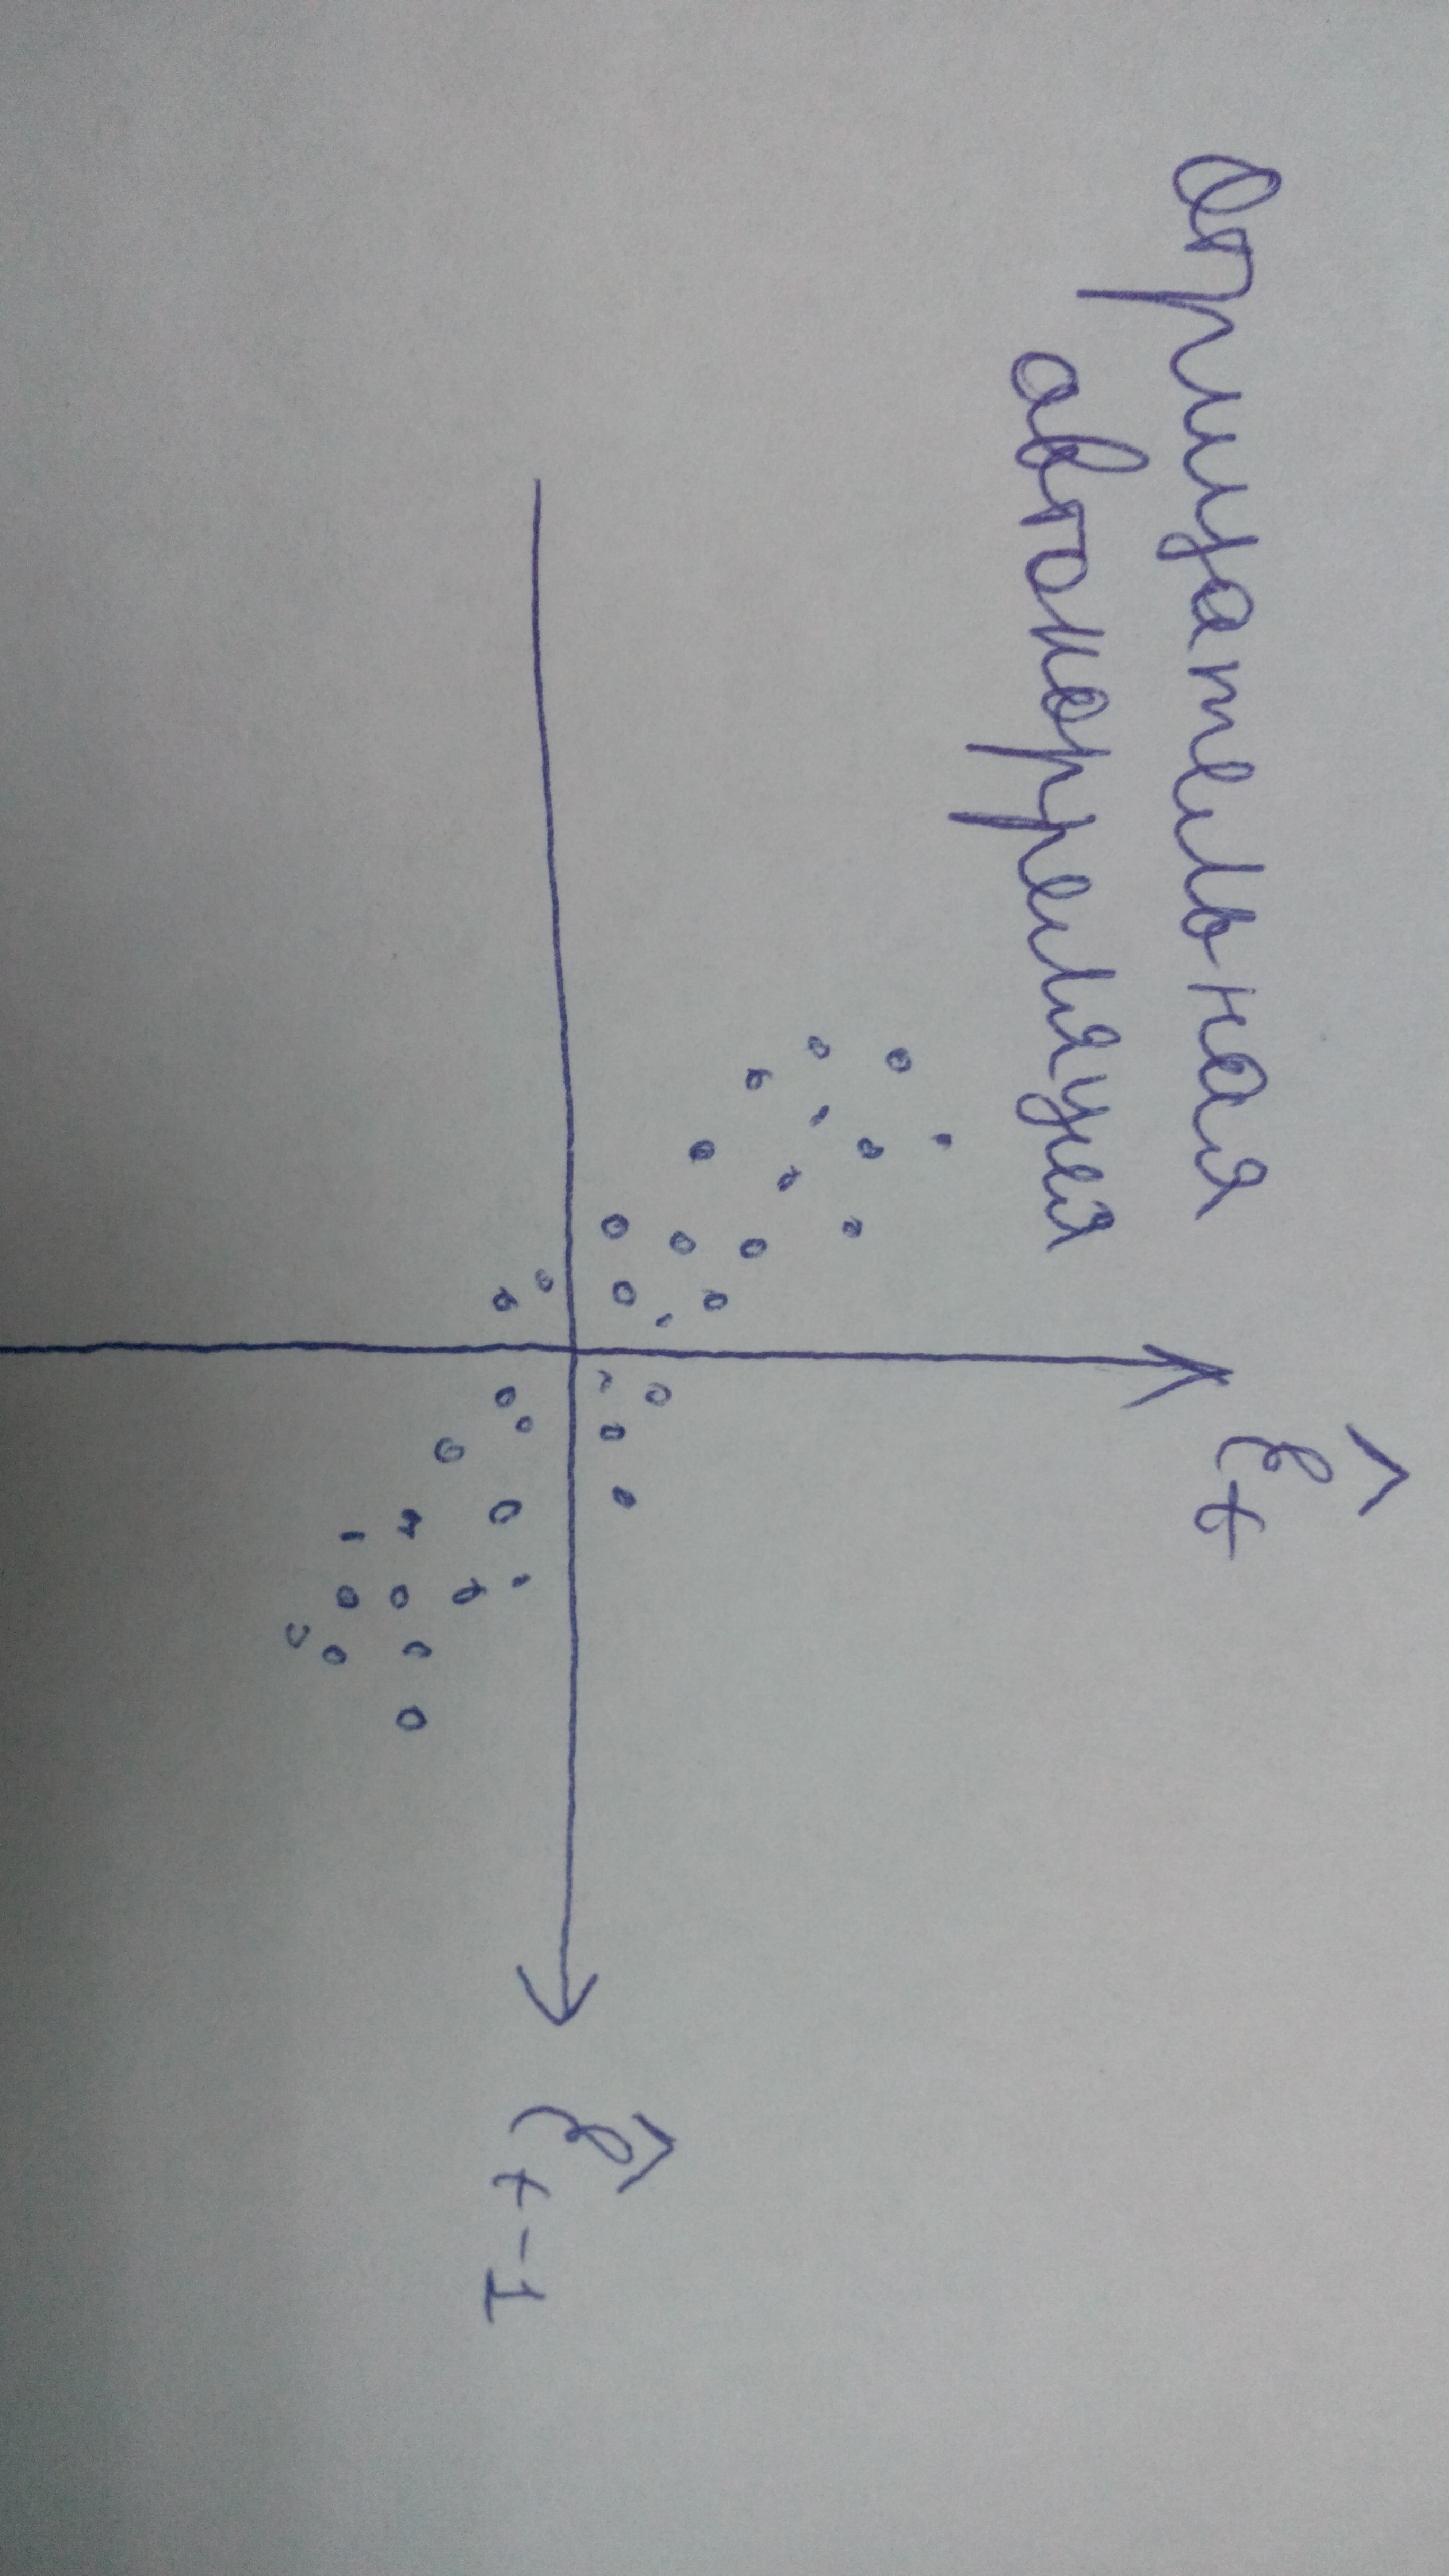 Отрицательная
автокорреляция
ε̂t
ε̂t-1